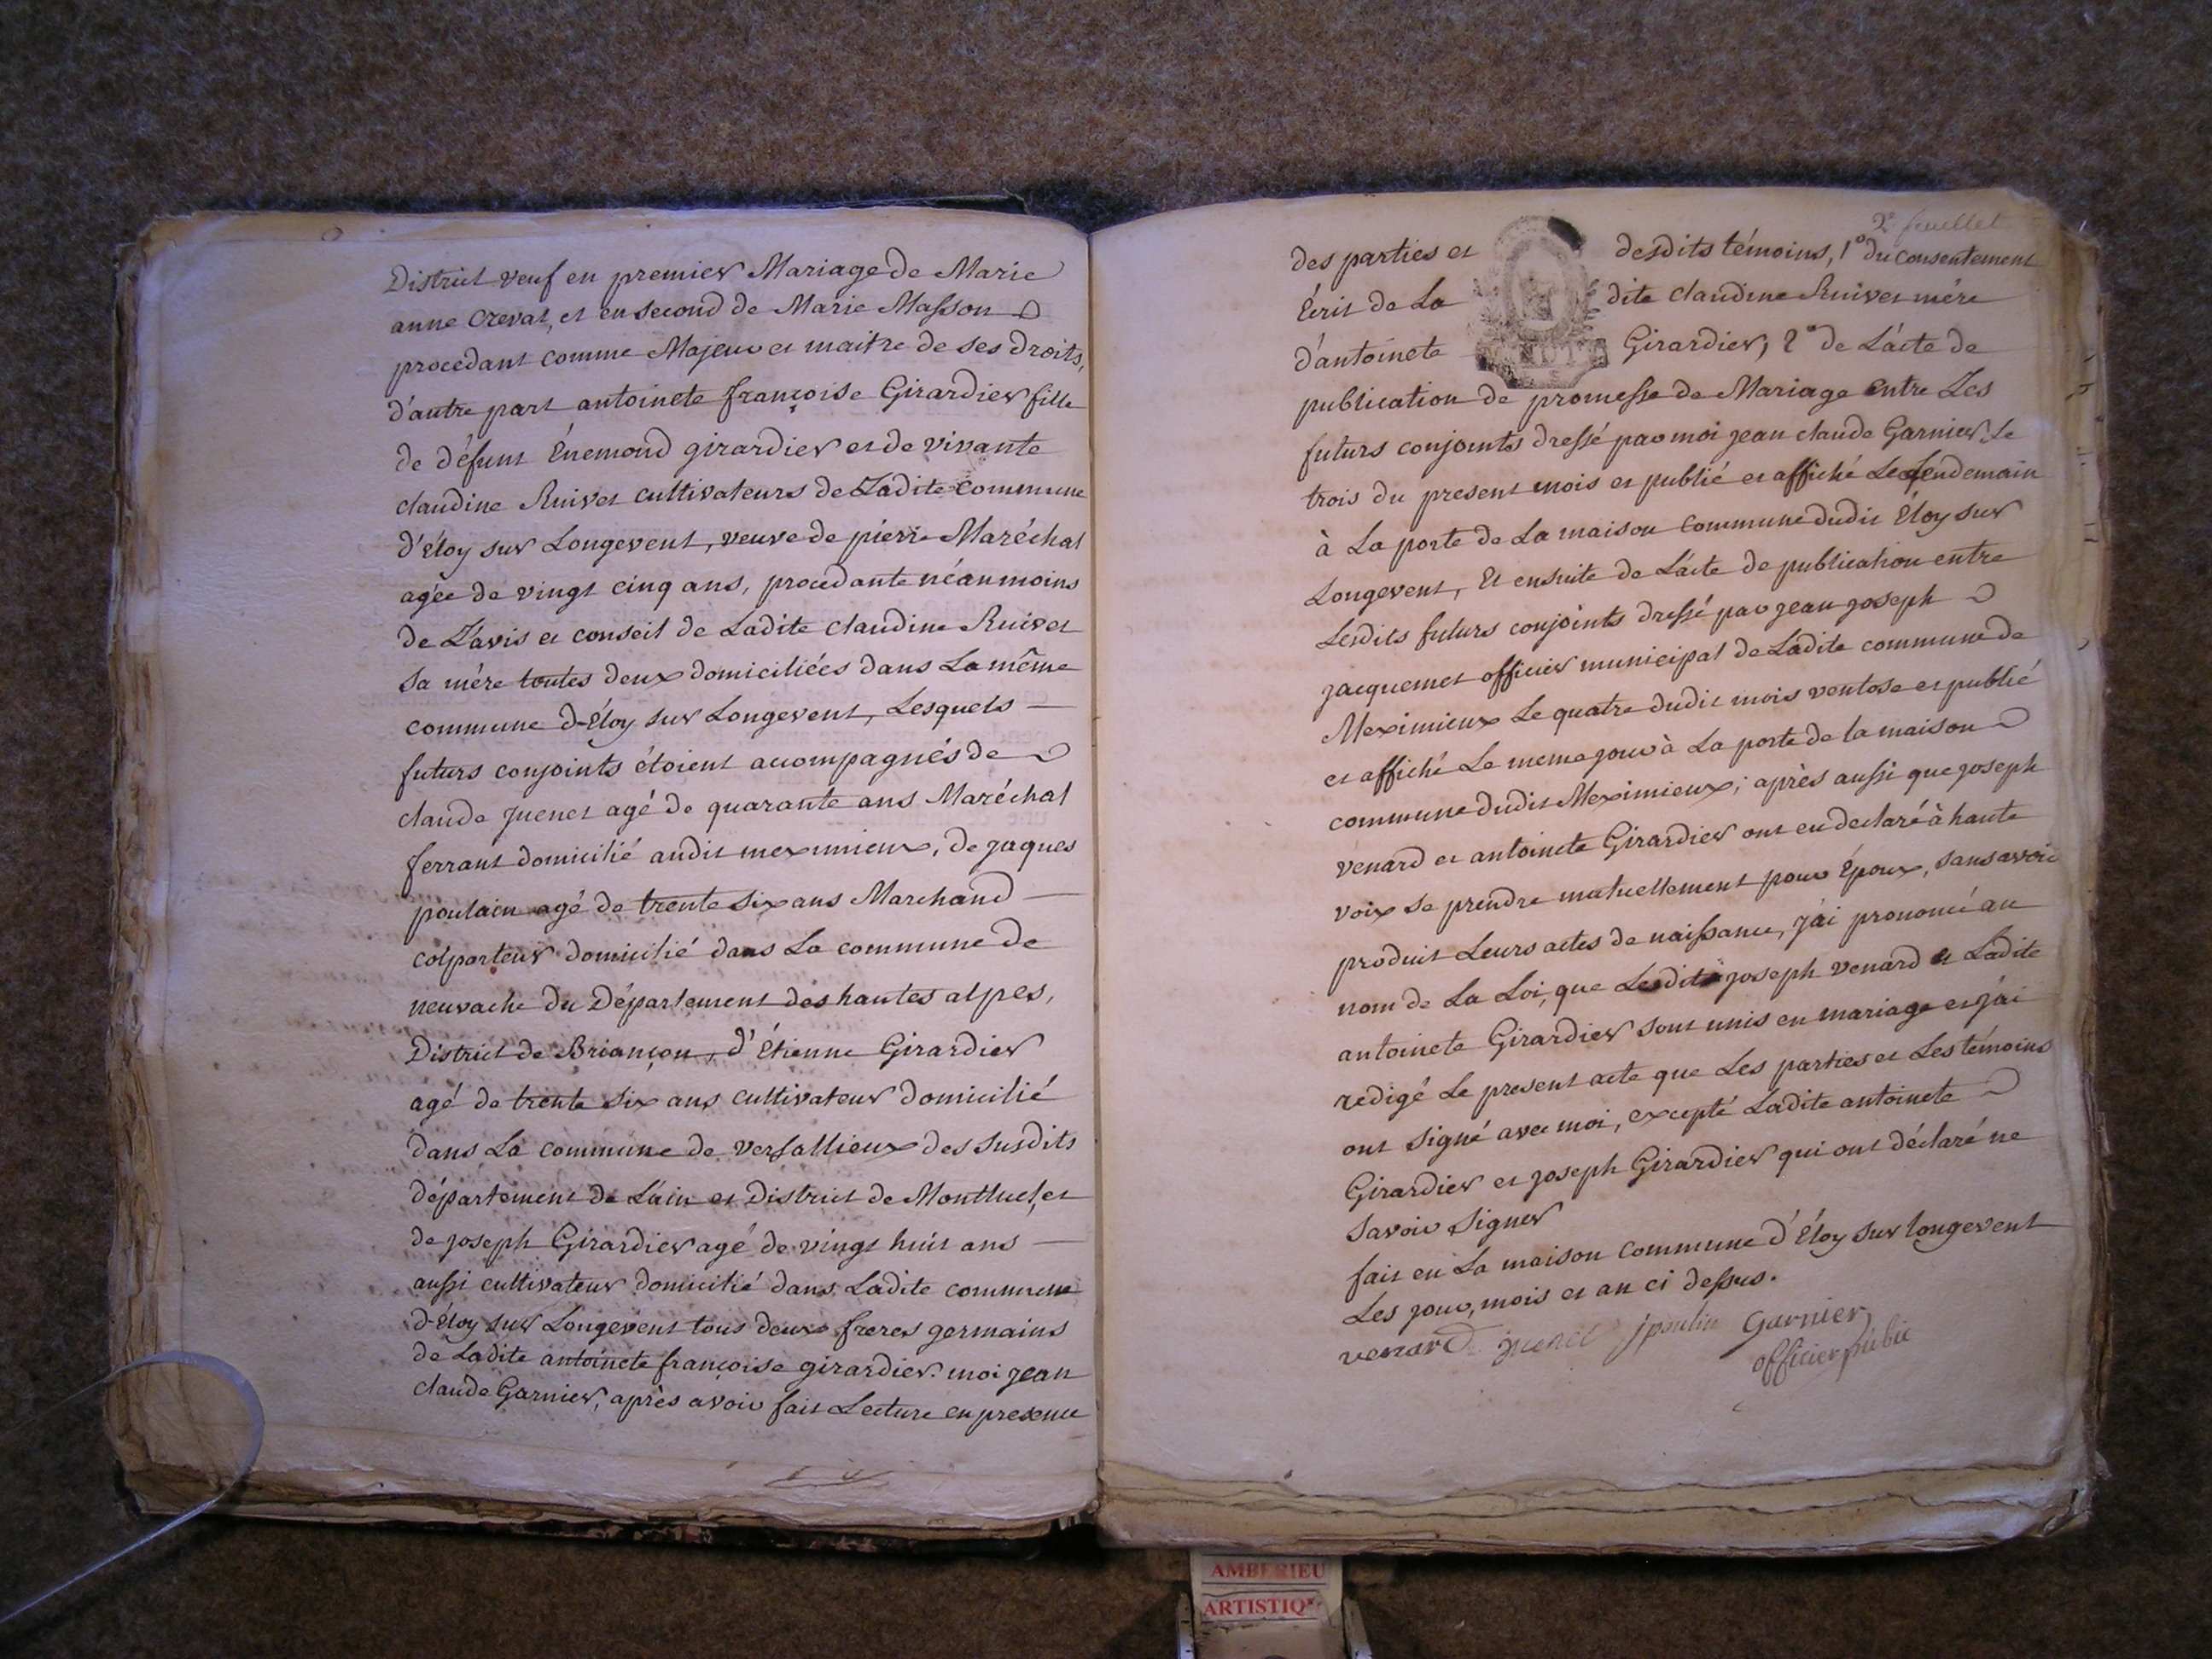 District veuf en premier Mariage de Marie
anne Creval, et en second de Marie Masson
procedant comme Majeur et maitre de ses droits,
d'autre part antoinete françoise Girardier fille
de défunt Énemond girardier et de vivante
claudine Ruivet cultivateurs de Ladite commune
d'Éloy sur Longevent, veuve de pierre Maréchal
agée de vingt cinq ans, procedante néanmoins
de L'avis et conseil de Ladite claudine Ruivet
sa mére toutes deux domiciliées dans La même
commune d'Éloy sur Longevent, Lesquels
futurs conjoints étoient accompagnés de
claude Juenet agé de quarante ans Maréchal
ferrant domicilié audit meximieux, de jaques
poulain agé de trente six ans Marchand
colporteur domicilié dans La commune de
neuvache du Département des hautes alpes,
District de Briançon, d'Étienne Girardier
agé de trente six ans cultivateur domicilié
dans La commune de Versallieux des susdits
département de L'ain et District de Montluel, et
de joseph Girardier agé de vingt huit ans
aussi cultivateur domicilié dans Ladite commune
d'Éloy sur Longevent tous deux freres germains
de Ladite antoinete françoise girardier. moi jean
claude Garnier, après avoir fait Lecture en presence
2e feuillet
des parties et desdits témoins, 1° du consentement
Écrit de La dite claudine Ruivet mére
d'antoinete Girardier, 2° de L'acte de
publication de promesse de Mariage entre Les
futurs conjoints dressé par moi jean claude Garnier Le
trois du present mois et publié et affiché Le Lendemain
à La porte de La maison commune dudit Éloy sur
Longevent, Et ensuite de L'acte de publication entre
Lesdits futurs conjoints dressé par jean joseph
jacquemet officier municipal de Ladite commune de
Meximieux Le quatre dudit mois ventose et publié
et affiché Le meme jour à La porte de la maison
commune dudit Meximieux; après aussi que joseph
venard et antoinete Girardier ont eu declaré à haute
voix se prendre mutuellement pour Époux, sans avoir
produit Leurs actes de naissance, j'ai prononcé au
nom de La Loi, que Lesdits joseph venard et Ladite
antoinete Girardier sont unis en mariage et j'ai
redigé Le present acte que Les parties et Les témoins
ont signé avec moi, excepté Ladite antoinete
Girardier et joseph Girardier qui ont déclaré ne
savoir signer
fait en La maison commune d'Éloy sur longevent
Les jour, mois et an ci dessus.
venard juenet jpoulin Garnier
officier public
AMBERIEU
ARTISTIQ